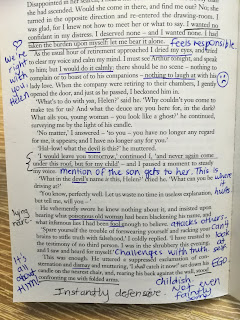 Disappointed in her search,
she had ascended. Would she come there, and find me out? No; she
turned in the opposite direction and re-entered the drawing-room. I
was glad, for I knew not how to meet her or what to say. I wanted no
confidant in my distress. I deserved none – and wanted none. I had
taken the burden upon myself: let me bear it alone.
feels responsible.
we're right with you, Helen!
As the usual hour of retirement approached I dried my eyes, and tried
to clear my voice and calm my mind. I must see Arthur tonight, and speak
to him; but I would do it calmly: there should be no scene – nothing to
complain or to boast of to his companions – nothing to laugh at with his
lady love. When the company were retiring to their chambers, I gently
opened the door, and just as he passed, I beckoned him in.
'What's to do with you, Helen?' said he. 'Why couldn't you come to
make tea for us? And what the deuce are you here for, in the dark?
What ails you, young woman – you look like a ghost?' he continued,
surveying me by the light of his candle.
'No matter,' I answered – 'to you – you have no longer any regard
for me, it appears; and I have no longer any for you.'
'Hal-low! what the devil is this?' he muttered.
'I would leave you tomorrow,' continued I, 'and never again come
under this roof, but for my child' – and I paused a moment to steady
my voice.
mention of the son gets to her. This is where it hurts
'What in the devil's name is this, Helen?' cried he. 'What can you be
driving at?'
'You know, perfectly well. Let us waste no time in useless explanation,
but tell me, will you –'
He vehemently swore he knew nothing about it, and insisted upon
hearing what poisonous old woman had been blackening his name, and
what infamous lies I had been fool enough to believe.
attacks others. Can't look at self
'Spare yourself the trouble of forswearing yourself and racking your
brains to stifle truth with falsehood,' I coldly replied. 'I have trusted to
the testimony of no third person. I was in the shrubbery this evening,
and I saw and heard for myself.'
Challenges with truth.
This was enough. He uttered a suppressed exclamation of con-
sternation and dismay, and muttering, 'I shall catch it now!' set down his
candle on the nearest chair, and, rearing his back against the wall, stood
confronting me with folded arms.
It's all about him!
Instantly defensive.
childish. Not even fazed!